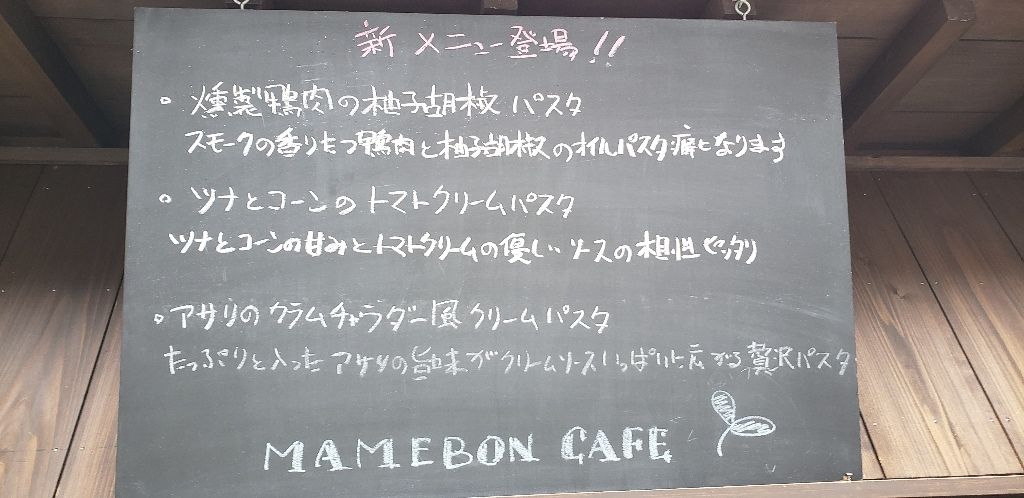 新メニュー登場!!
・燻製鴨肉の柚子胡椒パスタ
スモークの香りたつ鴨肉と柚子胡椒のオイルパスタ癖になります
・ツナとコーンのトマトクリームパスタ
ツナとコーンの甘みとトマトクリームの優しいソースの相性ピッタリ
・アサリのクラムチャウダー風クリームパスタ
たっぷりと入ったアサリの旨味がクリームソースいっぱいに広がる贅沢パスタ
MAMEBON CAFE